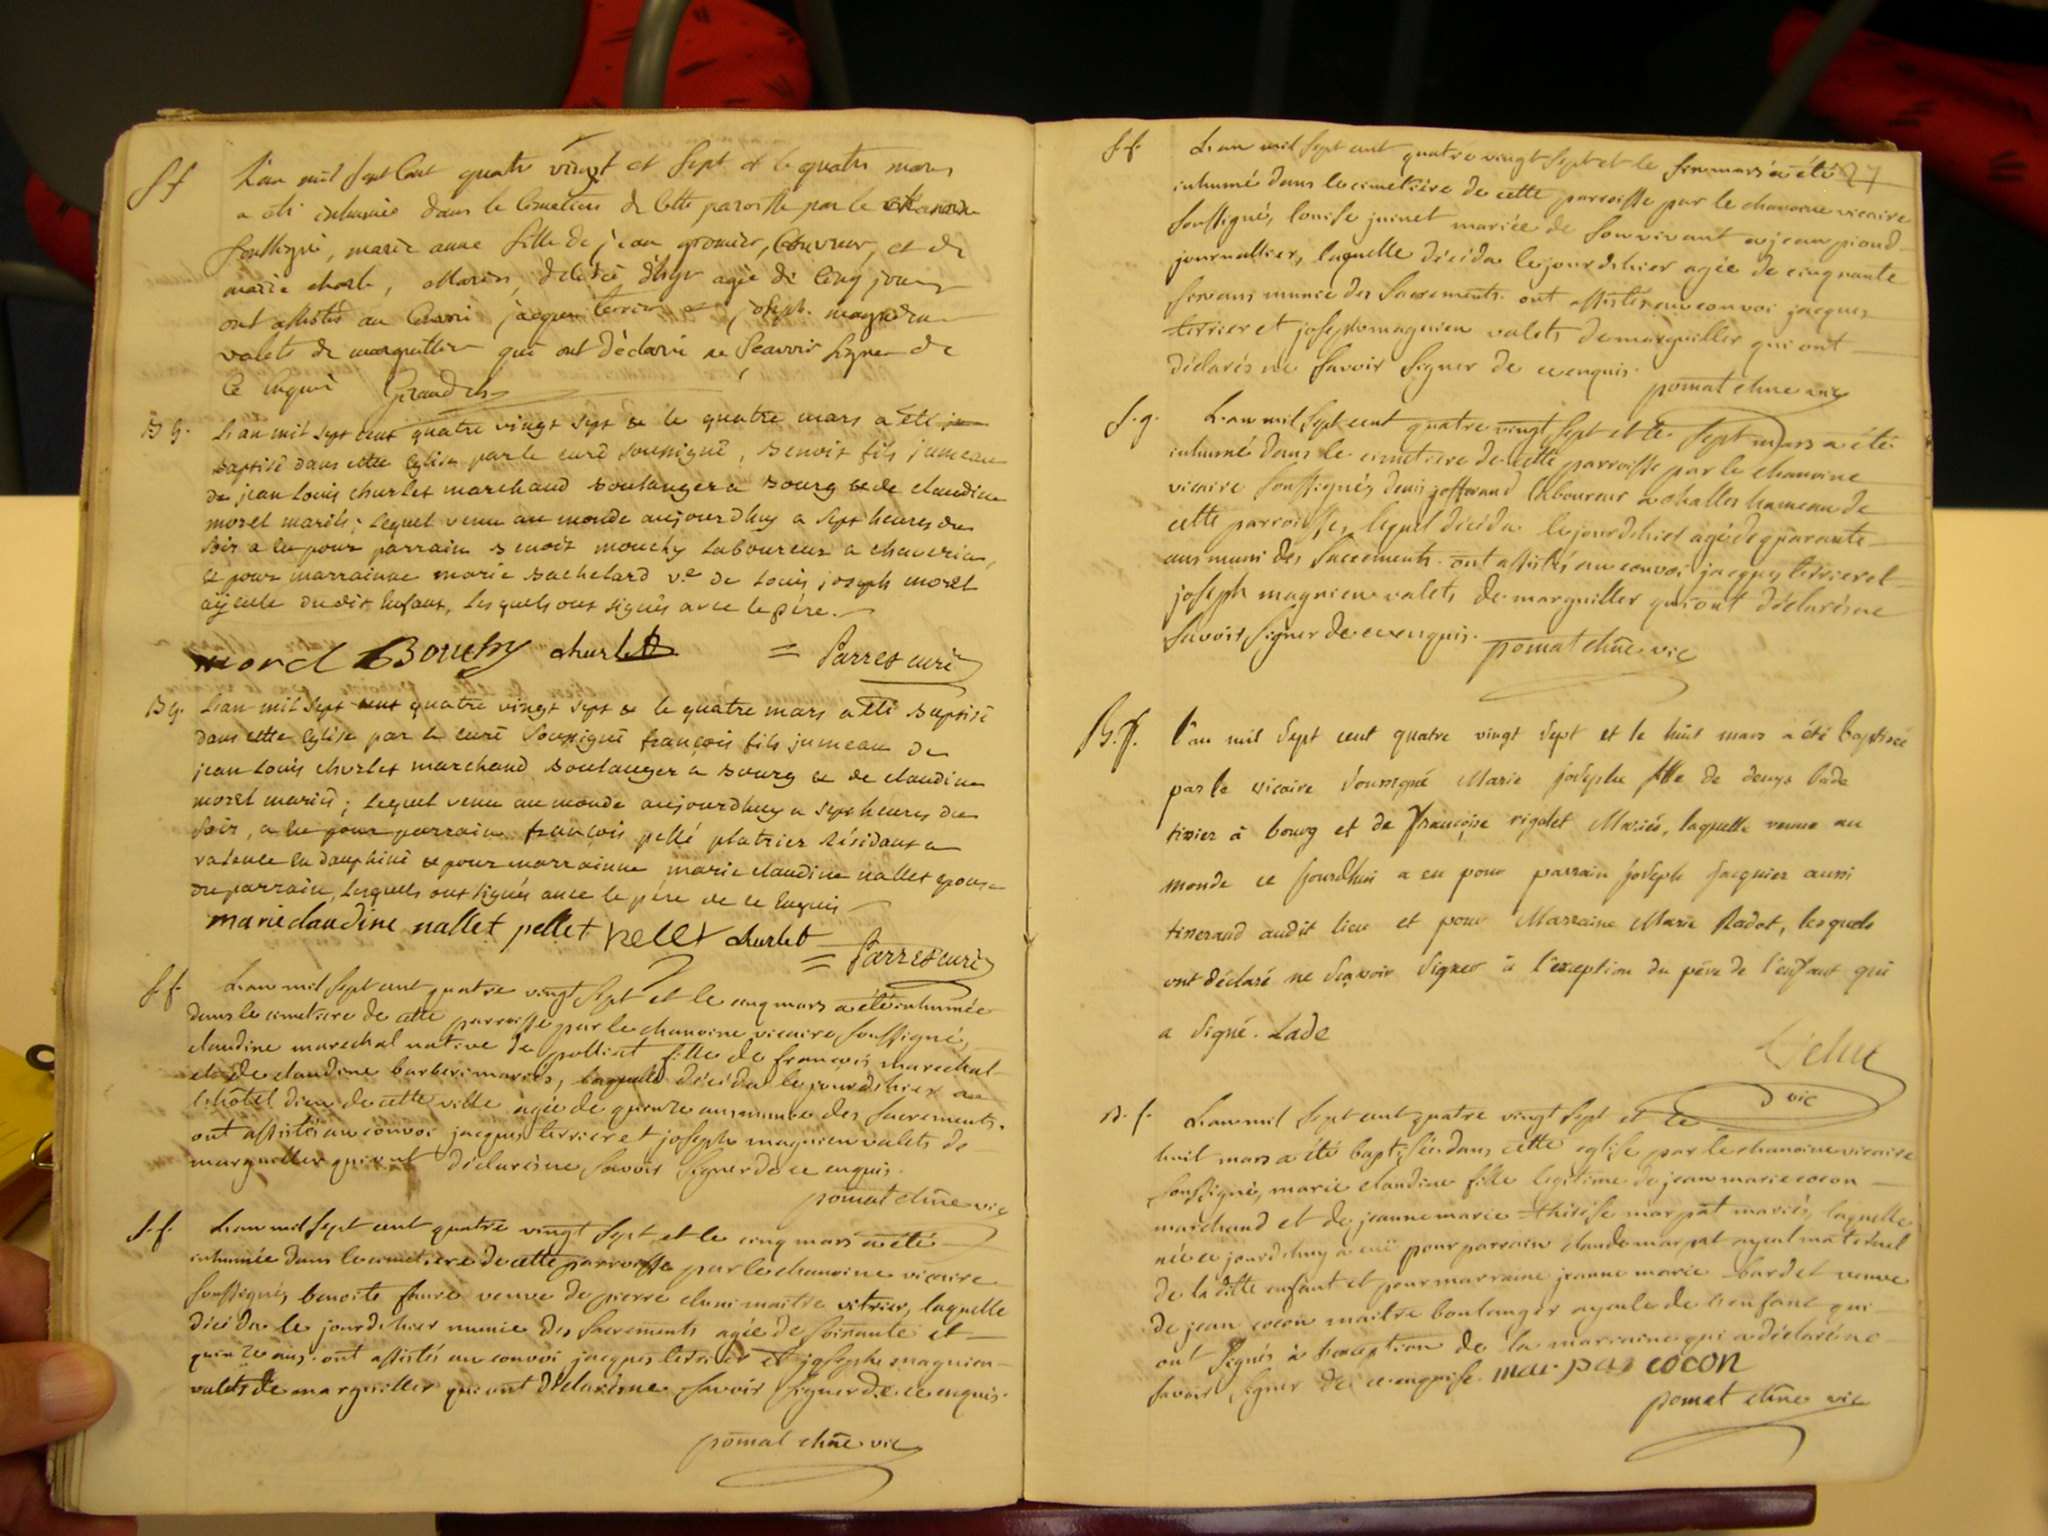 S f L'an mil sept Cent quatre vingt et sept et le quatre mars
a été inhumée dans le Cimetiere de Cette paroisse par le
soussigné, marie anne fille de jean gromier, Couvreur, et de
marie, Mariés, décédée d'hyr agée de Cinq jours
ont assistés au Convoi jacques terrier et joseph magnien
valets de marguillier qui ont déclaré ne sçavoir signer de
Ce enquis
B g. L'an mil sept cent quatre vingt sept & le quatre mars a été
baptisé dans cette Eglise par le curé soussigné, Benoit fils jumeau
de jean Louis charlet marchand Boulanger a Bourg & de claudine
morel mariés; Lequel venu au monde aujourdhuy a sept heures du
soir a eu pour parrain Benoit mouchy Laboureur a chaveria,
& pour marrainne marie Bachelard ve. de Louis joseph morel
ayeule dudit Enfant, Lesquels ont signés avec le pére.
morel Bouchy charlet = Parres curé
B g. L'an mil sept cent quatre vingt sept & le quatre mars a été Baptisé
dans cette Eglise par le curé soussigné françois fils jumeau de
jean Louis charlet marchand Boulanger a Bourg & de claudine
morel mariés; Lequel venu au monde aujourdhuy a sept heures du
soir, a eu pour parrain françois pellé platrier Résidant a
valence En dauphiné & pour marrainne marie claudine nallet Epouse
du parrain, Lesquels ont signés avec le pére de ce Enquis
marie claudine nallet pellet pellet charlet
= Parres curé
S. f. L'an mil sept cent quatre vingt sept et le cinq mars a été inhumée
dans le cimetiere de cette parroisse par le chanoine vicaire soussigné,
claudine marechal native de polliat fille de françois marechal
et de claudine barberi mariés, laquelle décéda le jour d'hier au
l'hôtel dieu de cette ville agée de quinze ans munie des sacrements.
ont assistés au convoi jacques terrier et joseph magnien valets de
marguiller qui ont déclarés ne savoir signer de ce enquis.
pomat chne vic
S. f. L'an mil sept cent quatre vingt sept et le cinq mars a été
inhumée dans le cimetiere de cette parroisse par le chanoine vicaire
soussigné, benoite faure veuve de pierre cluni maitre vitrier, laquelle
décéda le jour d'hier munie des sacrements agée de soixante et
quinze ans. ont assistés au convoi jacques terrier et joseph magnien
valets de marguiller qui ont déclarés ne savoir signer de ce enquis.
pomat chne vic
27
S. f. L'an mil sept cent quatre vingt sept et le six mars a été
inhumé dans le cimetiere de cette parroisse par le chanoine vicaire
soussigné, louise juinet mariée de son vivant a jean piond
journallier, laquelle décéda le jour d'hier agée de cinquante
six ans munie des sacrements. ont assistés au convoi jacques
terrier et joseph magnien valets de marguiller qui ont
déclarés ne savoir signer de ce enquis.
pomat chne vic
S. g. L'an mil sept cent quatre vingt sept et le sept mars a été
inhumé dans le cimetiere de cette parroisse par le chanoine
vicaire soussigné, denis joffrand laboureur a challes hameau de
cette parroisse, lequel décéda le jour d'hier agé de quarante
ans muni des sacrements. ont assistés au convoi jacques terrier et
joseph magnien valets de marguiller qui ont déclarés ne
savoir signer de ce enquis.
pomat chne vic
B. f. L'an mil sept cent quatre vingt sept et le huit mars a été baptisée
par le vicaire soussigné Marie josephe fille de denys Lade
tixier à bourg et de françoise rigolet Mariés, laquelle venue au
monde ce jourdhui a eu pour parrain joseph jacquier aussi
tisserand audit lieu et pour Marraine Marie Radot, lesquels
ont déclaré ne sçavoir signer à l'exception du père de l'enfant qui
a signé. Lade
vic
B. f. L'an mil sept cent quatre vingt sept et le
huit mars a été baptisée dans cette eglise par le chanoine vicaire
soussigné, marie claudine fille legitime de jean marie cocon
marchand et de jeanne marie thérèse marpat mariés, laquelle
née ce jourdhuy a eü pour parrain claude marpat ayeul maternel
de la ditte enfant et pour marraine jeanne marie bardet veuve
de jean cocon maitre boulanger ayeule de l'enfant qui
ont signés à l'exception de la marraine qui a déclaré ne
savoir signer de ce enquise. mar pat cocon
pomat chne vic